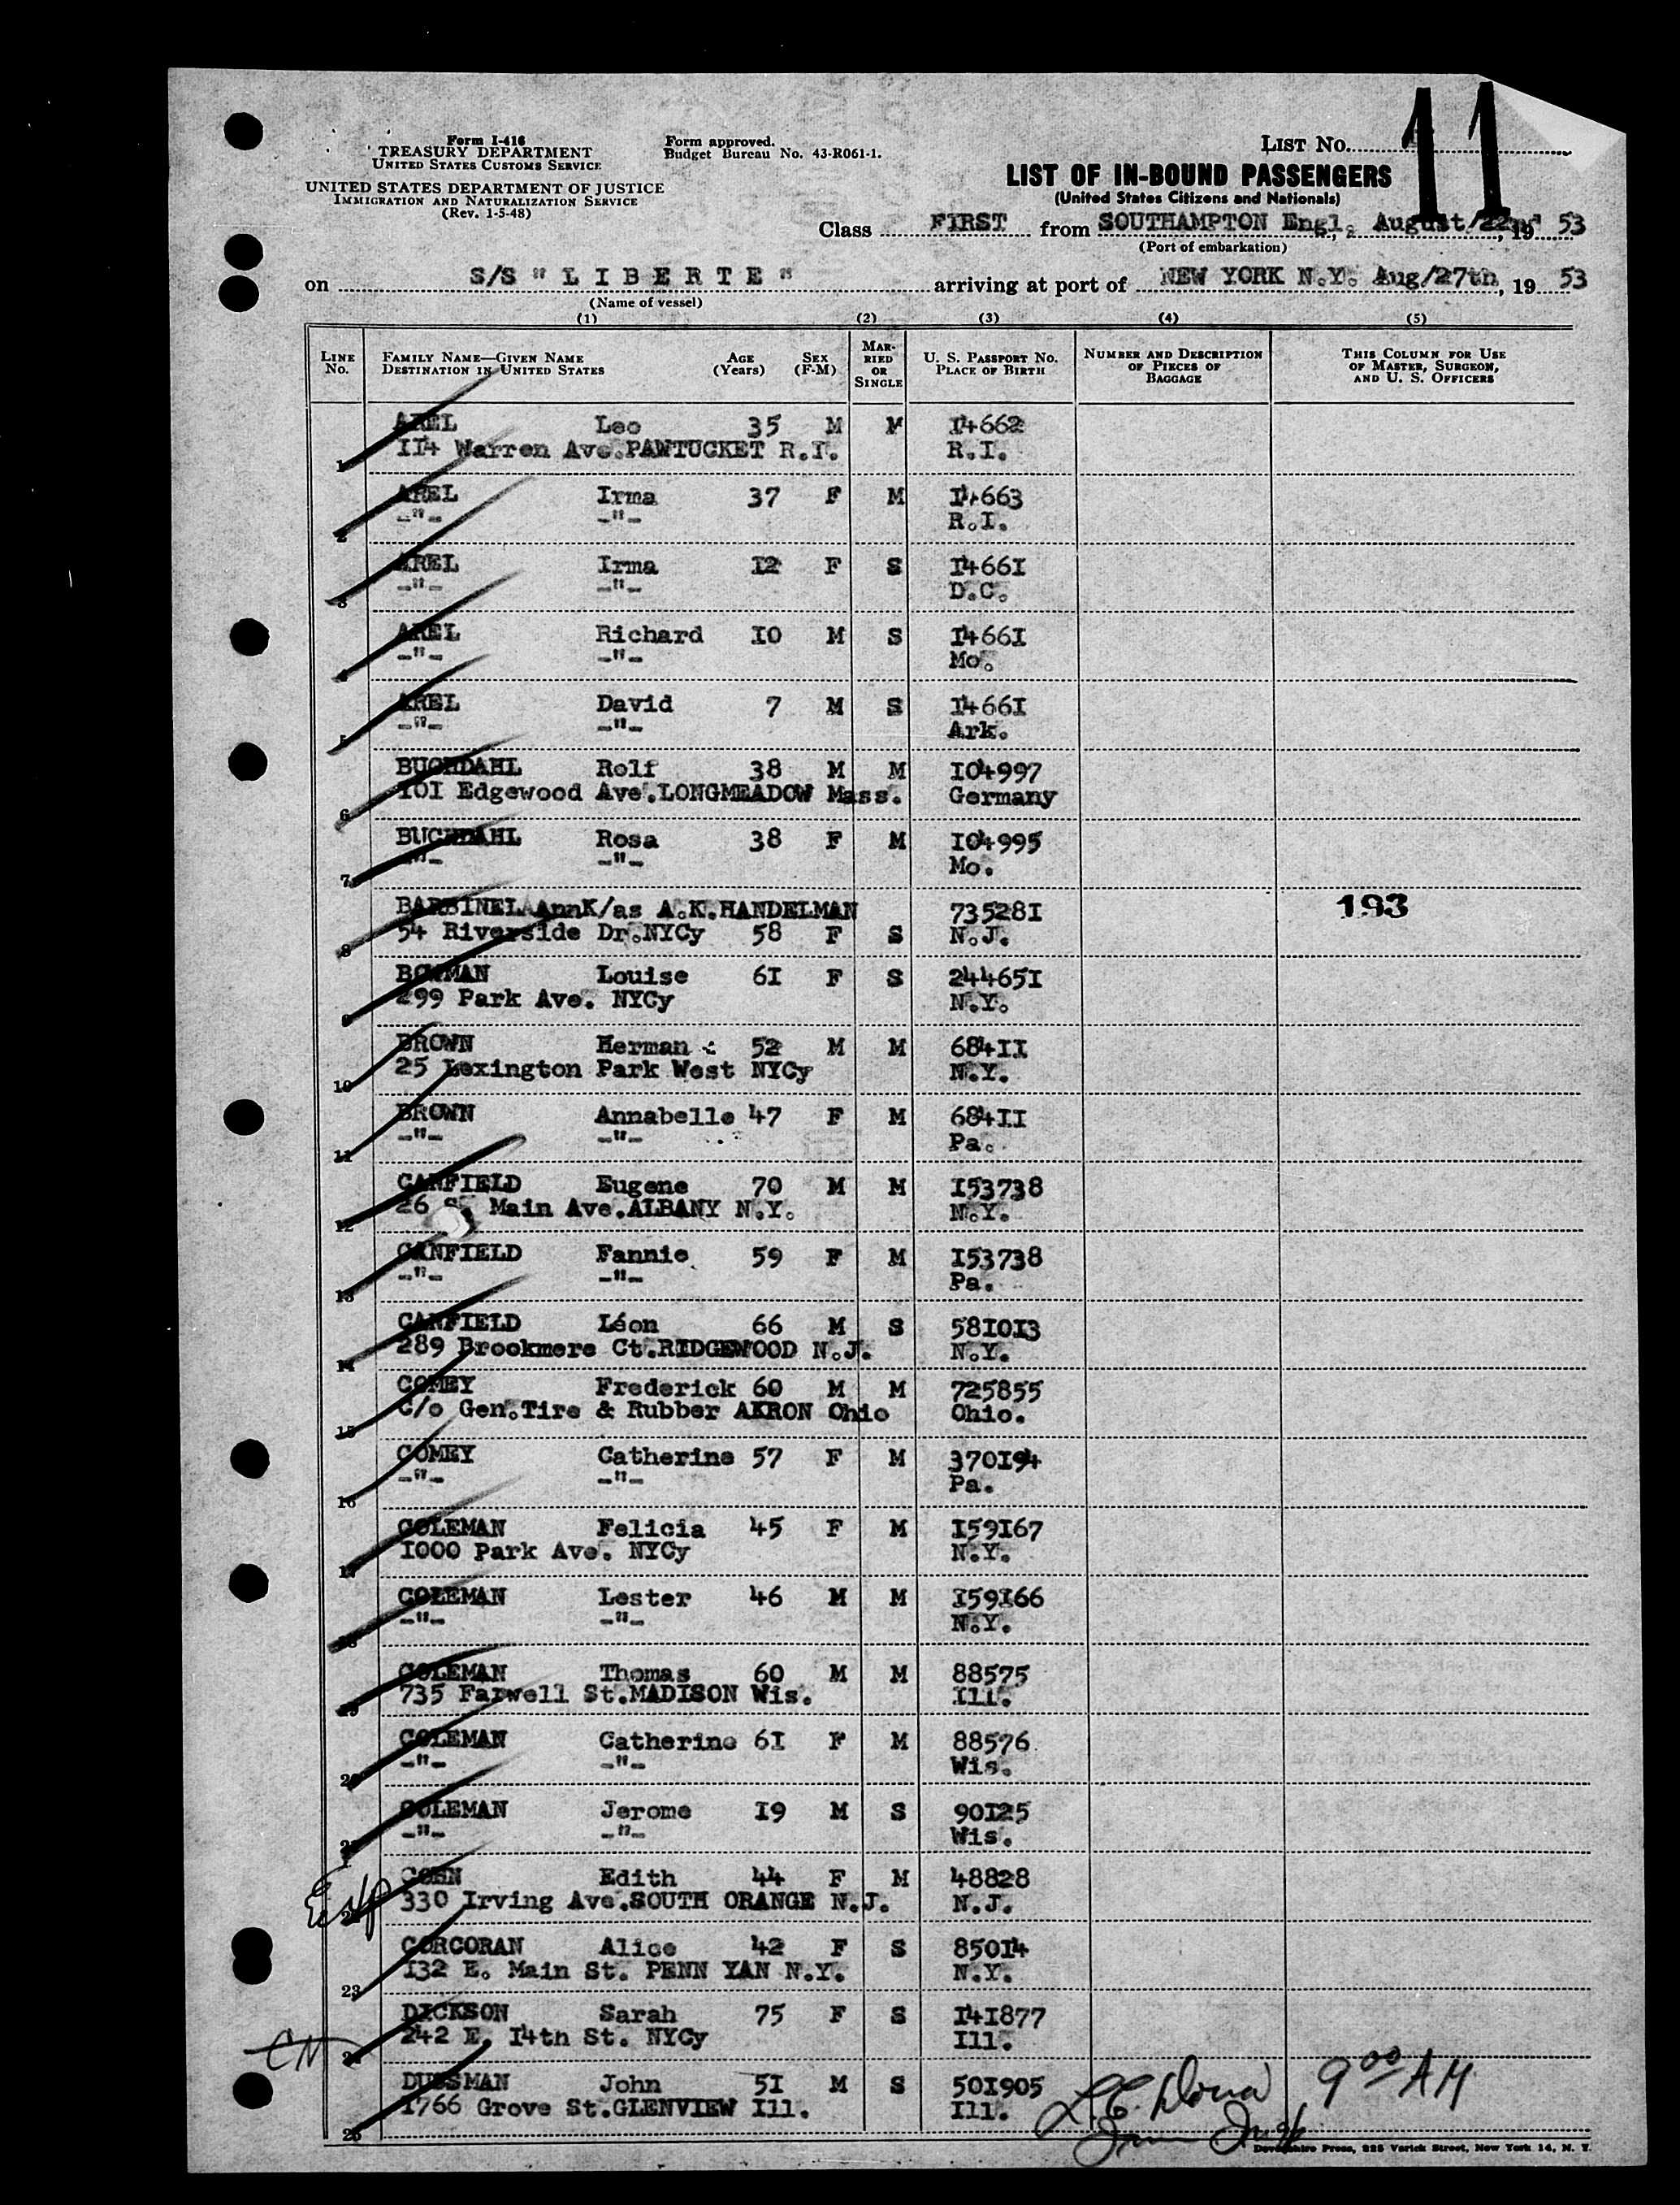 Form I-416
TREASURY DEPARTMENT
UNITED STATES CUSTOMS SERVICE
UNITED STATES DEPARTMENT OF JUSTICE
IMMIGRATION AND NATURALIZATION SERVICE
(Rev. 1-5-48)
Form approved.
Budget Bureau No. 43-R061-1.
LIST No. 11
LIST OF IN-BOUND PASSENGERS
(United States Citizens and Nationals)
Class FIRST from SOUTHAMPTON Engl., August/22nd, 19 53
(Port of embarkation)
on S/S "LIBERTE" arriving at port of NEW YORK N.Y. Aug/27th, 19 53
(Name of vessel)
(1) (2) (3) (4) (5)
LINE No. FAMILY NAME—GIVEN NAME DESTINATION IN UNITED STATES AGE (Years) SEX (F-M) MARRIED OR SINGLE U. S. PASSPORT NO. PLACE OF BIRTH NUMBER AND DESCRIPTION OF PIECES OF BAGGAGE THIS COLUMN FOR USE OF MASTER, SURGEON, AND U. S. OFFICERS
AREL Leo 35 M M I4662
1 II4 Warren Ave.PAWTUCKET R.I. R.I.
AREL Irma 37 F M I4663
2 -"- -"- R.I.
AREL Irma I2 F S I466I
3 -"- -"- D.C.
AREL Richard IO M S I466I
4 -"- -"- Mo.
AREL David 7 M S I466I
5 -"- -"- Ark.
BUCHDAHL Rolf 38 M M IO4997
6 IOI Edgewood Ave.LONGMEADOW Mass. Germany
BUCHDAHL Rosa 38 F M IO4995
7 -"- -"- Mo.
BARBINEL AnnK/as A.K.HANDELMAN 73528I 193
8 54 Riverside Dr.NYCy 58 F S N.J.
BOWMAN Louise 6I F S 24465I
9 299 Park Ave. NYCy N.Y.
BROWN Herman 52 M M 684II
10 25 Lexington Park West NYCy N.Y.
BROWN Annabelle 47 F M 684II
11 -"- -"- Pa.
CANFIELD Eugene 70 M M I53738
12 26 S. Main Ave.ALBANY N.Y. N.Y.
CANFIELD Fannie 59 F M I53738
13 -"- -"- Pa.
CANFIELD Léon 66 M S 58IOI3
14 289 Brookmere Ct.RIDGEWOOD N.J. N.Y.
COMEY Frederick 60 M M 725855
15 C/o Gen.Tire & Rubber AKRON Ohio Ohio.
COMEY Catherine 57 F M 370I94
16 -"- -"- Pa.
COLEMAN Felicia 45 F M I59I67
17 I000 Park Ave. NYCy N.Y.
COLEMAN Lester 46 M M I59I66
18 -"- -"- N.Y.
COLEMAN Thomas 60 M M 88575
19 735 Farwell St.MADISON Wis. Ill.
COLEMAN Catherine 6I F M 88576
20 -"- -"- Wis.
COLEMAN Jerome I9 M S 90I25
21 -"- -"- Wis.
COHN Edith 44 F M 48828
22 330 Irving Ave.SOUTH ORANGE N.J. N.J.
CORCORAN Alice 42 F S 850I4
23 I32 E. Main St. PENN YAN N.Y. N.Y.
DICKSON Sarah 75 F S I4I877
24 242 E. I4th St. NYCy Ill.
DUSSMAN John 5I M S 50I905
25 I766 Grove St.GLENVIEW Ill. Ill.
9 00 AM
Devonshire Press, 225 Varick Street, New York 14, N. Y.